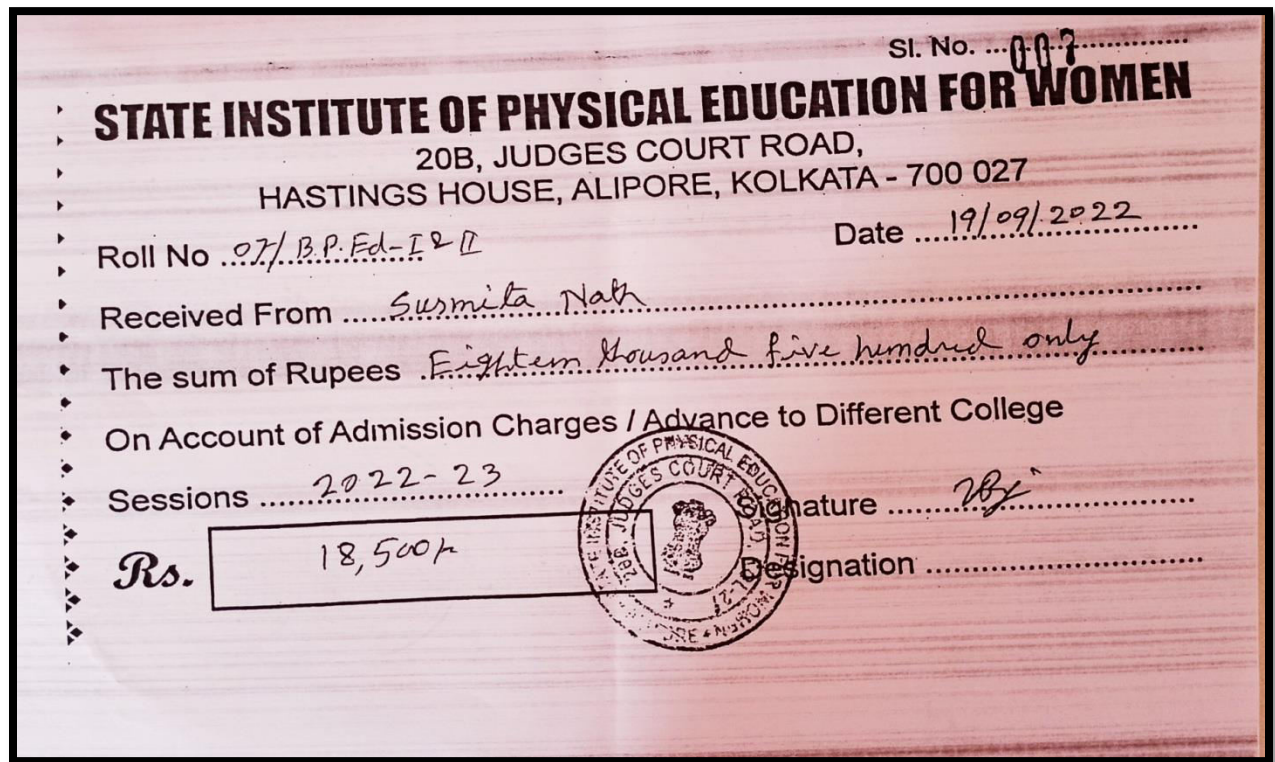 Sl. No. ...007..............
STATE INSTITUTE OF PHYSICAL EDUCATION FOR WOMEN
20B, JUDGES COURT ROAD,
HASTINGS HOUSE, ALIPORE, KOLKATA - 700 027
Roll No ...07/ B.P.Ed-I & II
Date ....19/09/2022......
Received From ..... Susmita Nath ..............................
The sum of Rupees .Eighteen thousand five hundred only............
On Account of Admission Charges / Advance to Different College
Sessions ......2022-23......
Signature ..............................
Rs. 18,500/-
Designation ..............................
STATE INSTITUTE OF PHYSICAL EDUCATION FOR WOMEN
20B, JUDGES COURT ROAD,